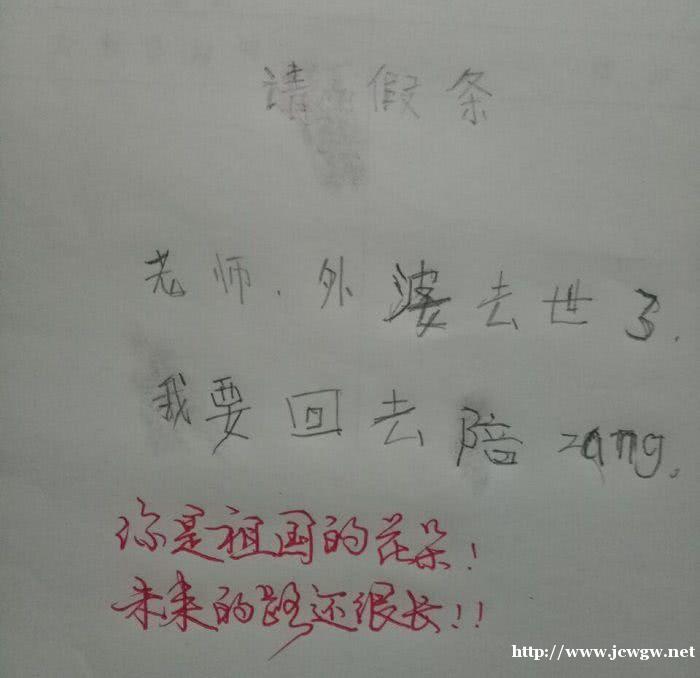 请假条
老师，外婆去世了，
我要回去陪zang。
你是祖国的花朵！
未来的路还很长！！
http://www.jcwgw.net